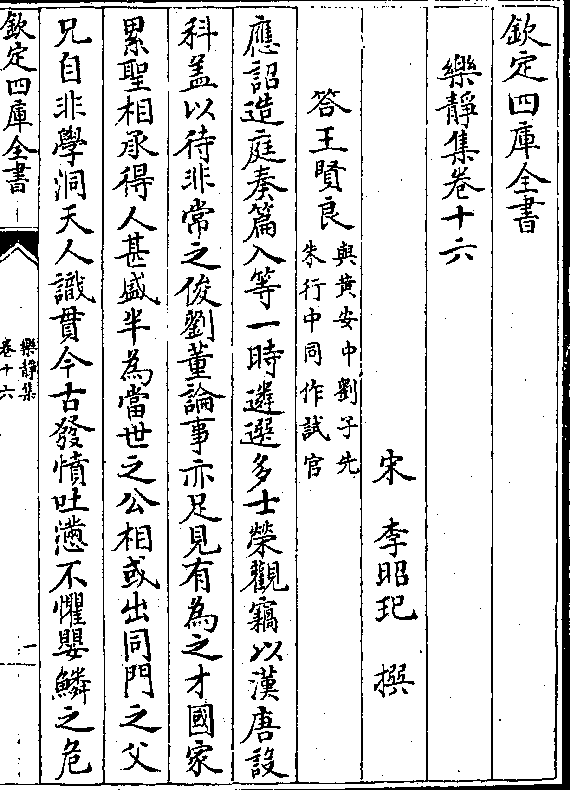 欽定四庫全書
樂靜集卷十六
宋 李昭玘 撰
答王賢良
與黃安中劉子先
朱行中同作試官
應詔造庭奏篇入等一時遴選多士榮觀竊以漢唐設
科盖以待非常之俊劉董論事亦足見有為之才國家
累聖相承得人甚盛半為當世之公相或出同門之父
兄自非學洞天人識貫今古發憤吐懣不懼嬰鱗之危
欽定四庫全書
樂靜集
卷十六
一